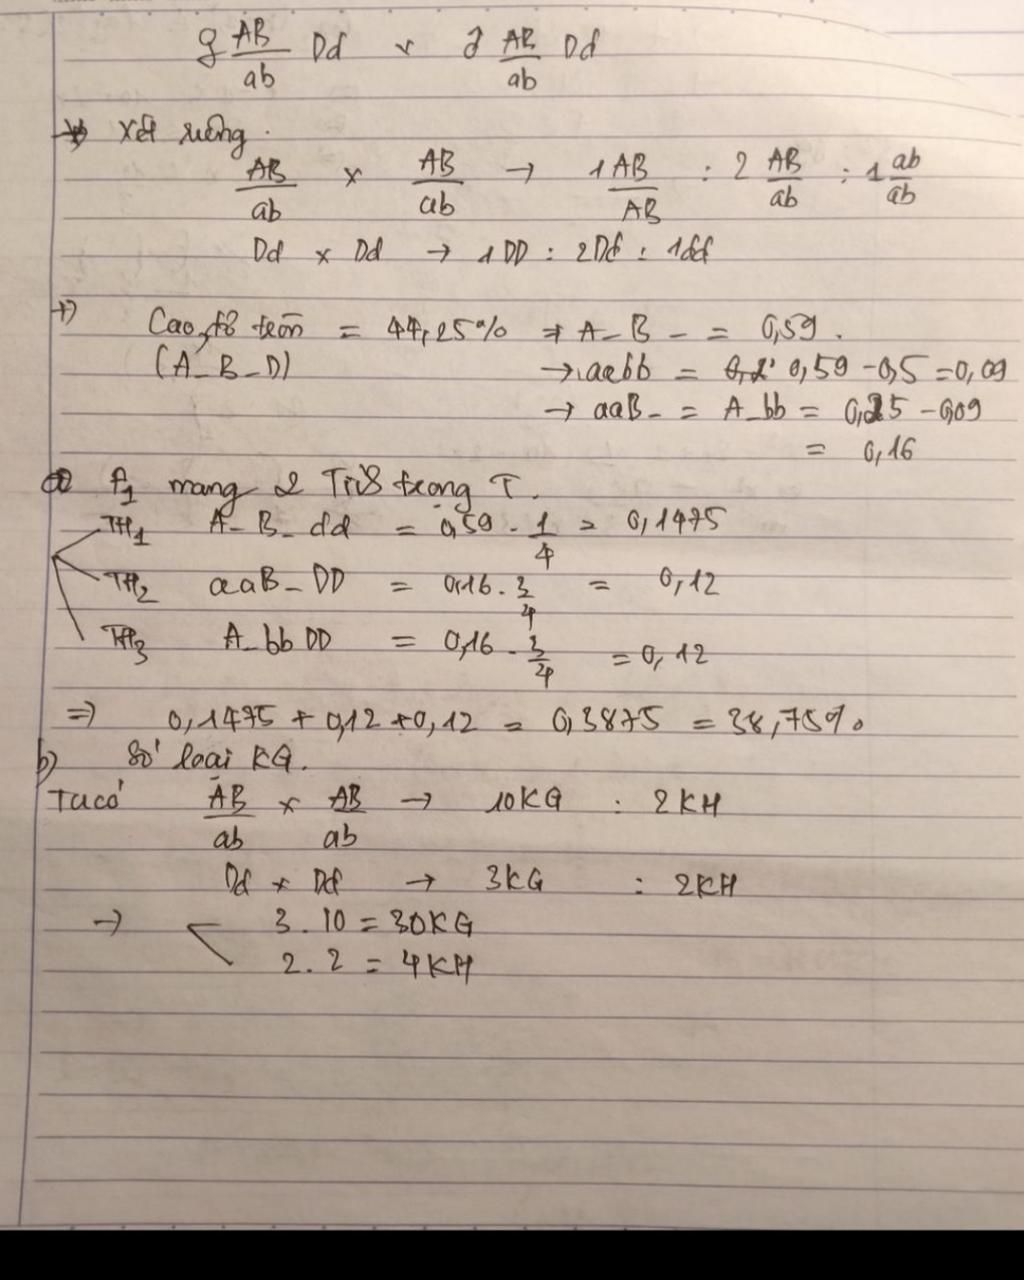 ♀ AB/ab Dd x ♂ AB/ab Dd
* Xét riêng.
AB/ab x AB/ab → 1 AB/AB : 2 AB/ab : 1 ab/ab
Dd x Dd → 1DD : 2Dd : 1dd
+) Cao, đỏ tròn = 44,25% ⇒ A_B_ = 0,59.
(A_B_D) → aabb = 0,59 - 0,5 = 0,09
→ aaB_ = A_bb = 0,25 - 0,09
= 0,16
a) F1 mang 2 Tr trong T.
TH1 A_B_dd = 0,59 . 1/4 = 0,1475
TH2 aaB_DD = 0,16 . 3/4 = 0,12
TH3 A_bb DD = 0,16 . 3/4 = 0,12
⇒ 0,1475 + 0,12 + 0,12 = 0,3875 = 38,75%
b) Số loại KG.
Ta có AB/ab x AB/ab → 10KG : 2KH
Dd x Dd → 3KG : 2KH
→ 3.10 = 30KG
2.2 = 4KH